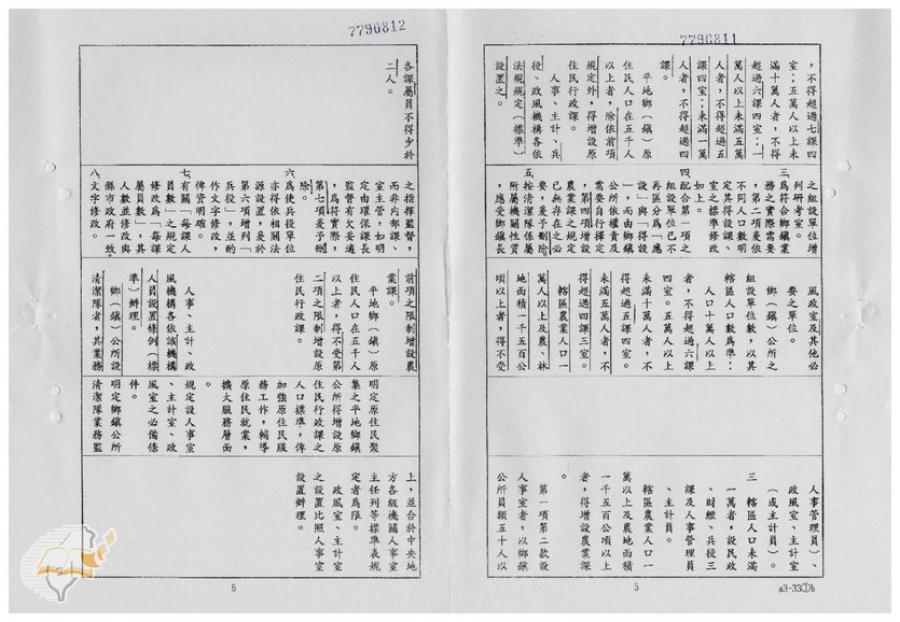 7790811
，不得超過七課四
室；五萬人以上未
滿十萬人者，不得
超過六課四室；一
萬人以上未滿五萬
人者，不得超過五
課四室；未滿一萬
人者，不得超過四
課。
平地鄉（鎮）原
住民人口在五千人
以上者，除依前項
規定外，得增設原
住民行政課。
人事、主計、兵
役、政風機構各依
法規規定（標準）
設置之。
之組設單位增
列研考室。
三、為符合鄉鎮業
務之實際需要
，第二項爰依
不同人口數明
定其得設課、
室之標準修改
如上。
四、配合第一項之
組設單位已不
再區分為「應
設」與「得設
」，而由鄉鎮
公所依權責及
需要自行擇定
，第四項增設
農業課之規定
已無存在之必
要，爰予刪除。
五、按清潔隊係屬
附屬機關性質
，應受鄉鎮長
風政室及其他必
要之單位。
鄉（鎮）公所之
組設單位數，以其
轄區人口數為準：
人口十萬人以上
者，不得超過六課
四室。五萬人以上
未滿十萬人者，不
得超過五課四室。
未滿五萬人者，不
得超過四課三室。
轄區農業人口一
萬人以上及農、林
地面積一千五百公
項以上者，得不受
人事管理員）、
政風室、主計室
（或主計員）。
三 轄區人口未滿
一萬者，設民政
、財經、兵役三
課及人事管理員
、主計員。
轄區農業人口一
萬以上及農地面積
一千五百公頃以上
者，得增設農業課
。
第一項第二款設
人事室者，以鄉鎮
公所員額五十人以
5
a3-33①b
7790812
各課屬員不得少於
二人。
之指揮監督，
而非內部課、
室主管，如明
定由環保課長
監督有欠妥適
，為符實際，
第七項爰予刪
除。
六、為使兵役單位
亦得依相關法
源設置，爰於
第六項增列「
兵役」，並酌
作文字修改，
俾資明確。
七、有關「每課人
員數」之規定
修改為「每課
屬員數」，其
人數並修改與
縣市政府一致。
八、文字修改。
前項之限制增設農
業課。
平地鄉（鎮）原
住民人口在五千人
以上者，得不受第
二項之限制增設原
住民行政課。
人事、主計、政
風機構各依該機構
人員設置條例（標
準）辦理。
鄉（鎮）公所設
清潔隊者，其業務
明定原住民聚
集之平地鄉鎮
公所得增設原
住民行政課之
人口標準，俾
加強原住民服
務工作，輔導
原住民就業，
擴大服務層面
。
規定設人事室
、主計室、政
風室之必備條
件。
明定鄉鎮公所
清潔隊業務監
上，並合於中央地
方各級機關人事室
主任列等標準表規
定者為限。
政風室、主計室
之設置比照人事室
設置辦理。
6